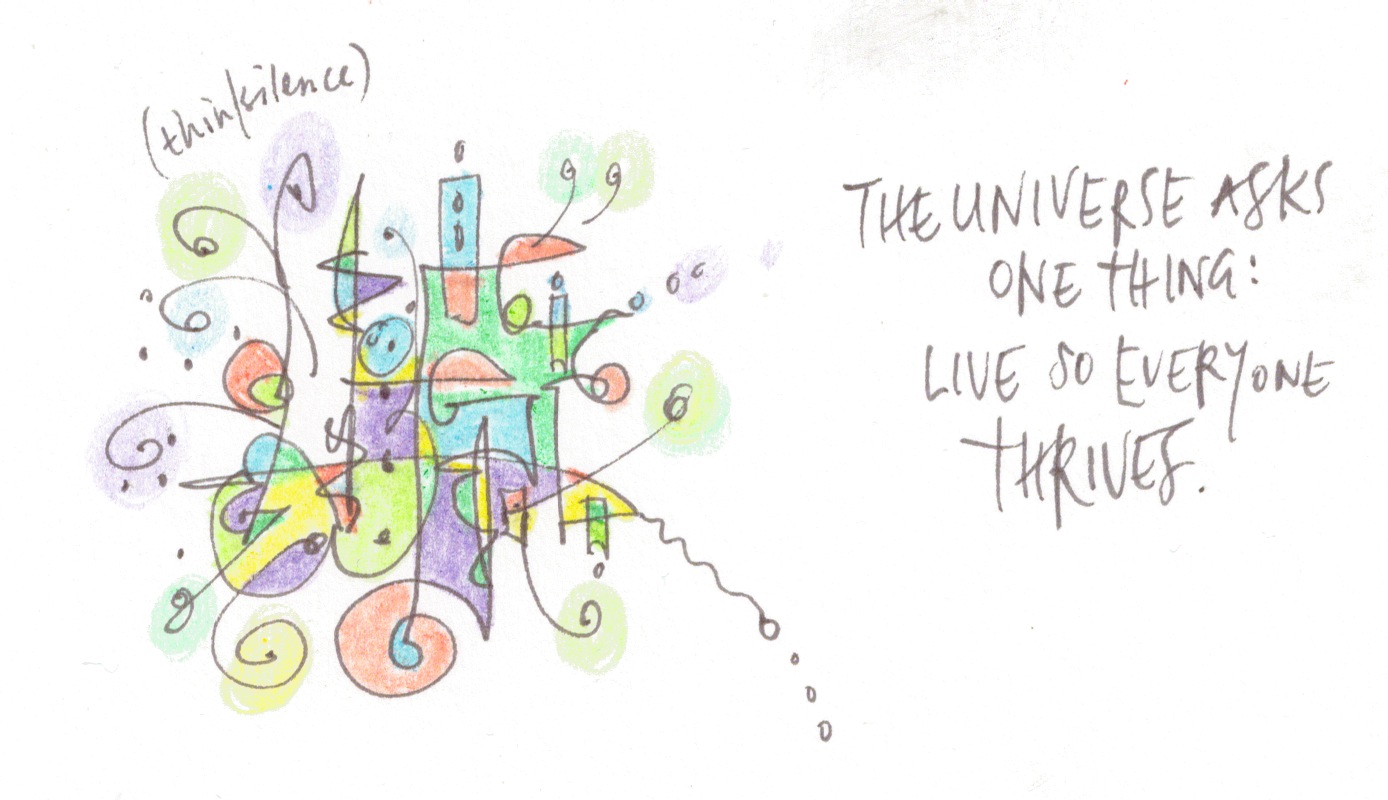 (thinksilence)
THE UNIVERSE ASKS
ONE THING:
LIVE SO EVERYONE
THRIVES.